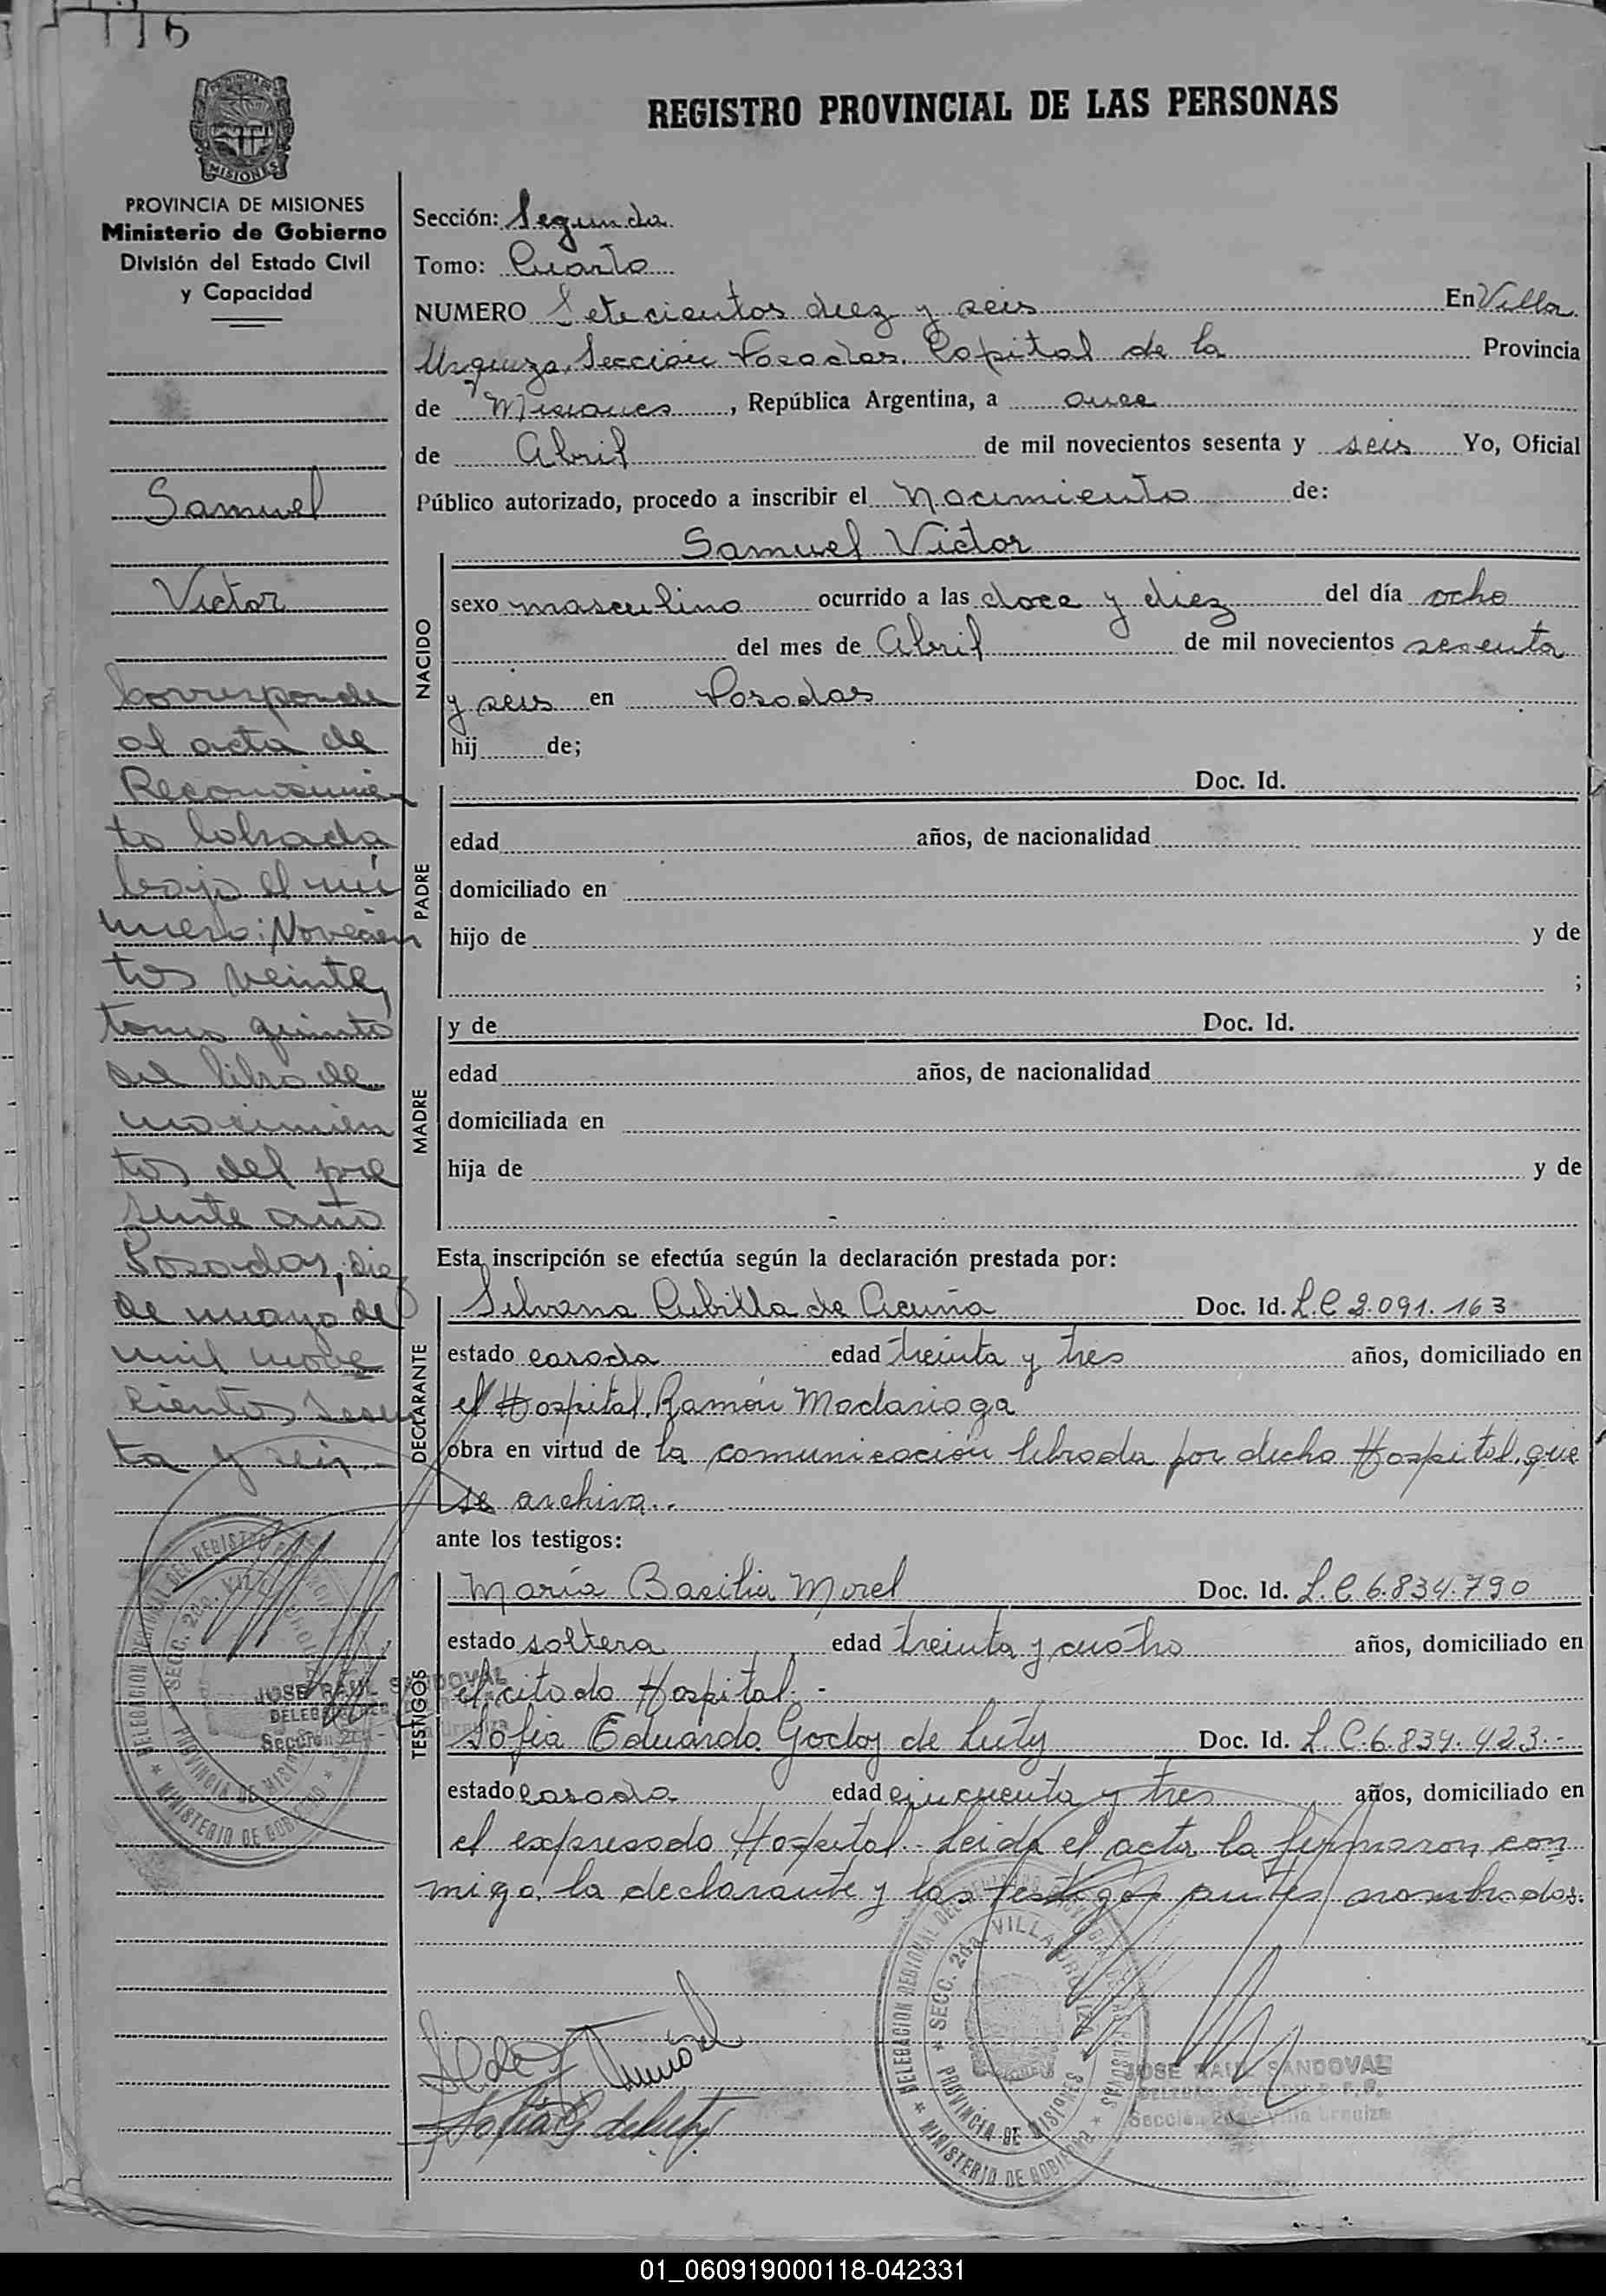 116
REGISTRO PROVINCIAL DE LAS PERSONAS
MISIONES
PROVINCIA DE MISIONES
Ministerio de Gobierno
División del Estado Civil
y Capacidad
Samuel
Victor
Corresponde
al acta de
Reconocimien
to labrada
bajo el nú
mero: Novecien
tos veinte,
tomo quinto
del libro de
nacimien
tos del pre
sente año
Posadas, diez
de mayo de
mil nove
cientos sesen
ta y seis.-
Sección: Segunda
Tomo: Cuarto
NUMERO Setecientos diez y seis En Villa
Urquiza, Sección Posadas, Capital de la Provincia
de Misiones, República Argentina, a once
de Abril de mil novecientos sesenta y seis Yo, Oficial
Público autorizado, procedo a inscribir el Nacimiento de:
NACIDO
Samuel Victor
sexo masculino ocurrido a las doce y diez del día ocho
del mes de Abril de mil novecientos sesenta
y seis en Posadas
hij de;
PADRE
Doc. Id.
edad años, de nacionalidad
domiciliado en
hijo de y de
;
MADRE
y de Doc. Id.
edad años, de nacionalidad
domiciliada en
hija de y de
Esta inscripción se efectúa según la declaración prestada por:
DECLARANTE
Silvana Cubilla de Acuña Doc. Id. L.C 2.091.163
estado casada edad treinta y tres años, domiciliado en
el Hospital, Ramón Madariaga
obra en virtud de la comunicación librada por dicho Hospital, que
se archiva.-
ante los testigos:
TESTIGOS
María Basilia Morel Doc. Id. L.C 6.834.790
estado soltera edad treinta y cuatro años, domiciliado en
el citado Hospital.-
Sofia Eduarda Godoy de Luty Doc. Id. L.C.6.834.423.-
estado casada edad cincuenta y tres años, domiciliado en
el expresado Hospital.- Leida el acta la firmaron con
migo, la declarante y los testigos antes nombrados.
DELEGACION REGIONAL DEL REGISTRO PROVINCIAL DE LAS PERSONAS
SECC. 2da. VILLA URQUIZA
PROVINCIA DE MISIONES
MINISTERIO DE GOBIERNO
JOSE RAUL SANDOVAL
Sección 2da - Villa Urquiza
DELEGACION REGIONAL DEL REGISTRO PROVINCIAL DE LAS PERSONAS
SECC. 2da. VILLA URQUIZA
PROVINCIA DE MISIONES
MINISTERIO DE GOBIERNO
JOSE RAUL SANDOVAL
Sección 2da - Villa Urquiza
Sofia G de Luty
01_060919000118-042331